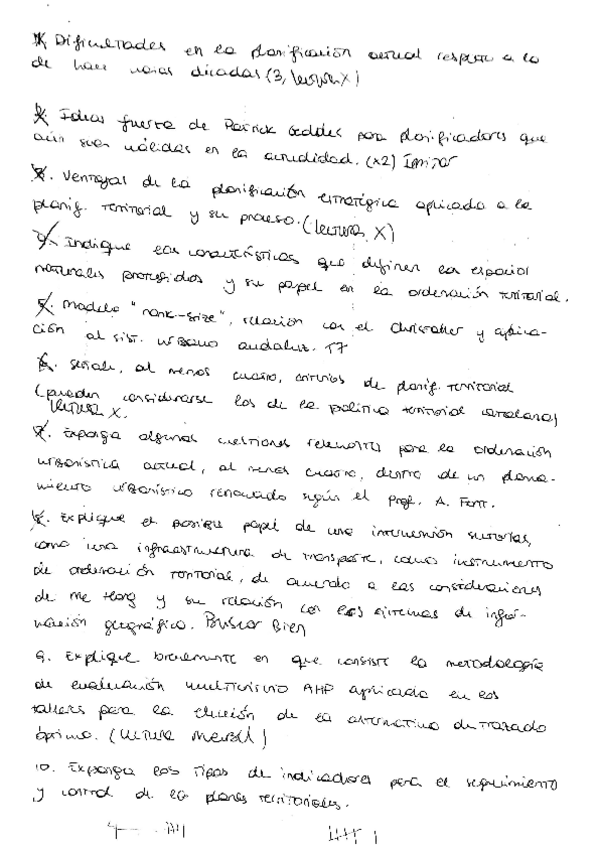 1. Dificultades en la planificación actual respecto a la
de hace varias décadas (3, lectura X)
2. Ideas fuerza de Patrick Geddes para planificadores que
aún sean válidas en la actualidad. (x2)
3. Ventajas de la planificación estratégica aplicada a la
planif. territorial y su proceso. (lectura X)
4. Indique las características que definen los espacios
naturales protegidos y su papel en la ordenación territorial.
5. Modelo "rank-size", relación con el Christaller y aplica-
ción al sist. urbano andaluz. T7
6. Señale, al menos cuatro, criterios de planif. territorial
(pueden considerarse los de la política territorial catalana)
lectura X.
7. Exponga algunas cuestiones relevantes para la ordenación
urbanística actual, al menos cuatro, dentro de un planea-
miento urbanístico renovado según el Prof. A. Font.
8. Explique el posible papel de una intervención sectorial,
como una infraestructura de transporte, como instrumento
de ordenación territorial, de acuerdo a las consideraciones
de Mc Harg y su relación con los sistemas de infor-
mación geográfica. Buscar Bien
9. Explique brevemente en que consiste la metodología
de evaluación multicriterio AHP aplicada en los
talleres para la elección de la alternativa de trazado
óptimo. (lectura
10. Exponga los tipos de indicadores para el seguimiento
y control de los planes territoriales.